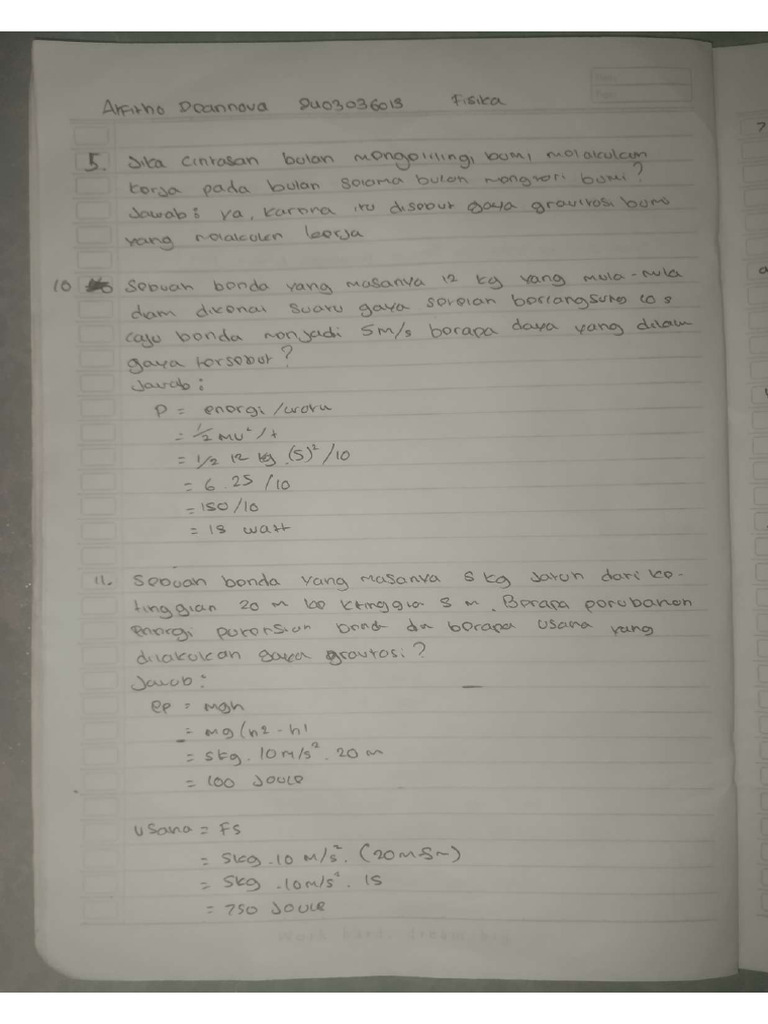 Arfitho Deannova DU03036013 Fisika
5. Jika lintasan bulan mengelilingi bumi melakukan
kerja pada bulan selama bulan mengitari bumi?
Jawab: ya, karena itu disebut gaya gravitasi bumi
yang melakukan kerja
10 Sebuah benda yang masanya 12 kg yang mula-mula
diam dikenai suatu gaya setelah berlangsung 10 s
laju benda menjadi 5 m/s berapa daya yang
gaya tersebut?
Jawab:
P = energi / waktu
= 1/2 mv² / t
= 1/2 12 kg . (5)² / 10
= 6 . 25 / 10
= 150 / 10
= 15 watt
11. Sebuah benda yang masanya 5 kg jatuh dari ke-
tinggian 20 m ke ktinggia 5 m. Berapa perubahan
energi potensian bend dn berapa usaha yang
dilakukan gaya gravtasi?
Jawab:
ep = mgh
= mg (h2 - h1
= 5kg . 10 m/s² . 20 m
= 100 Joule
Usaha = Fs
= 5kg . 10 m/s² . (20m-5m)
= 5kg . 10m/s² . 15
= 750 Joule